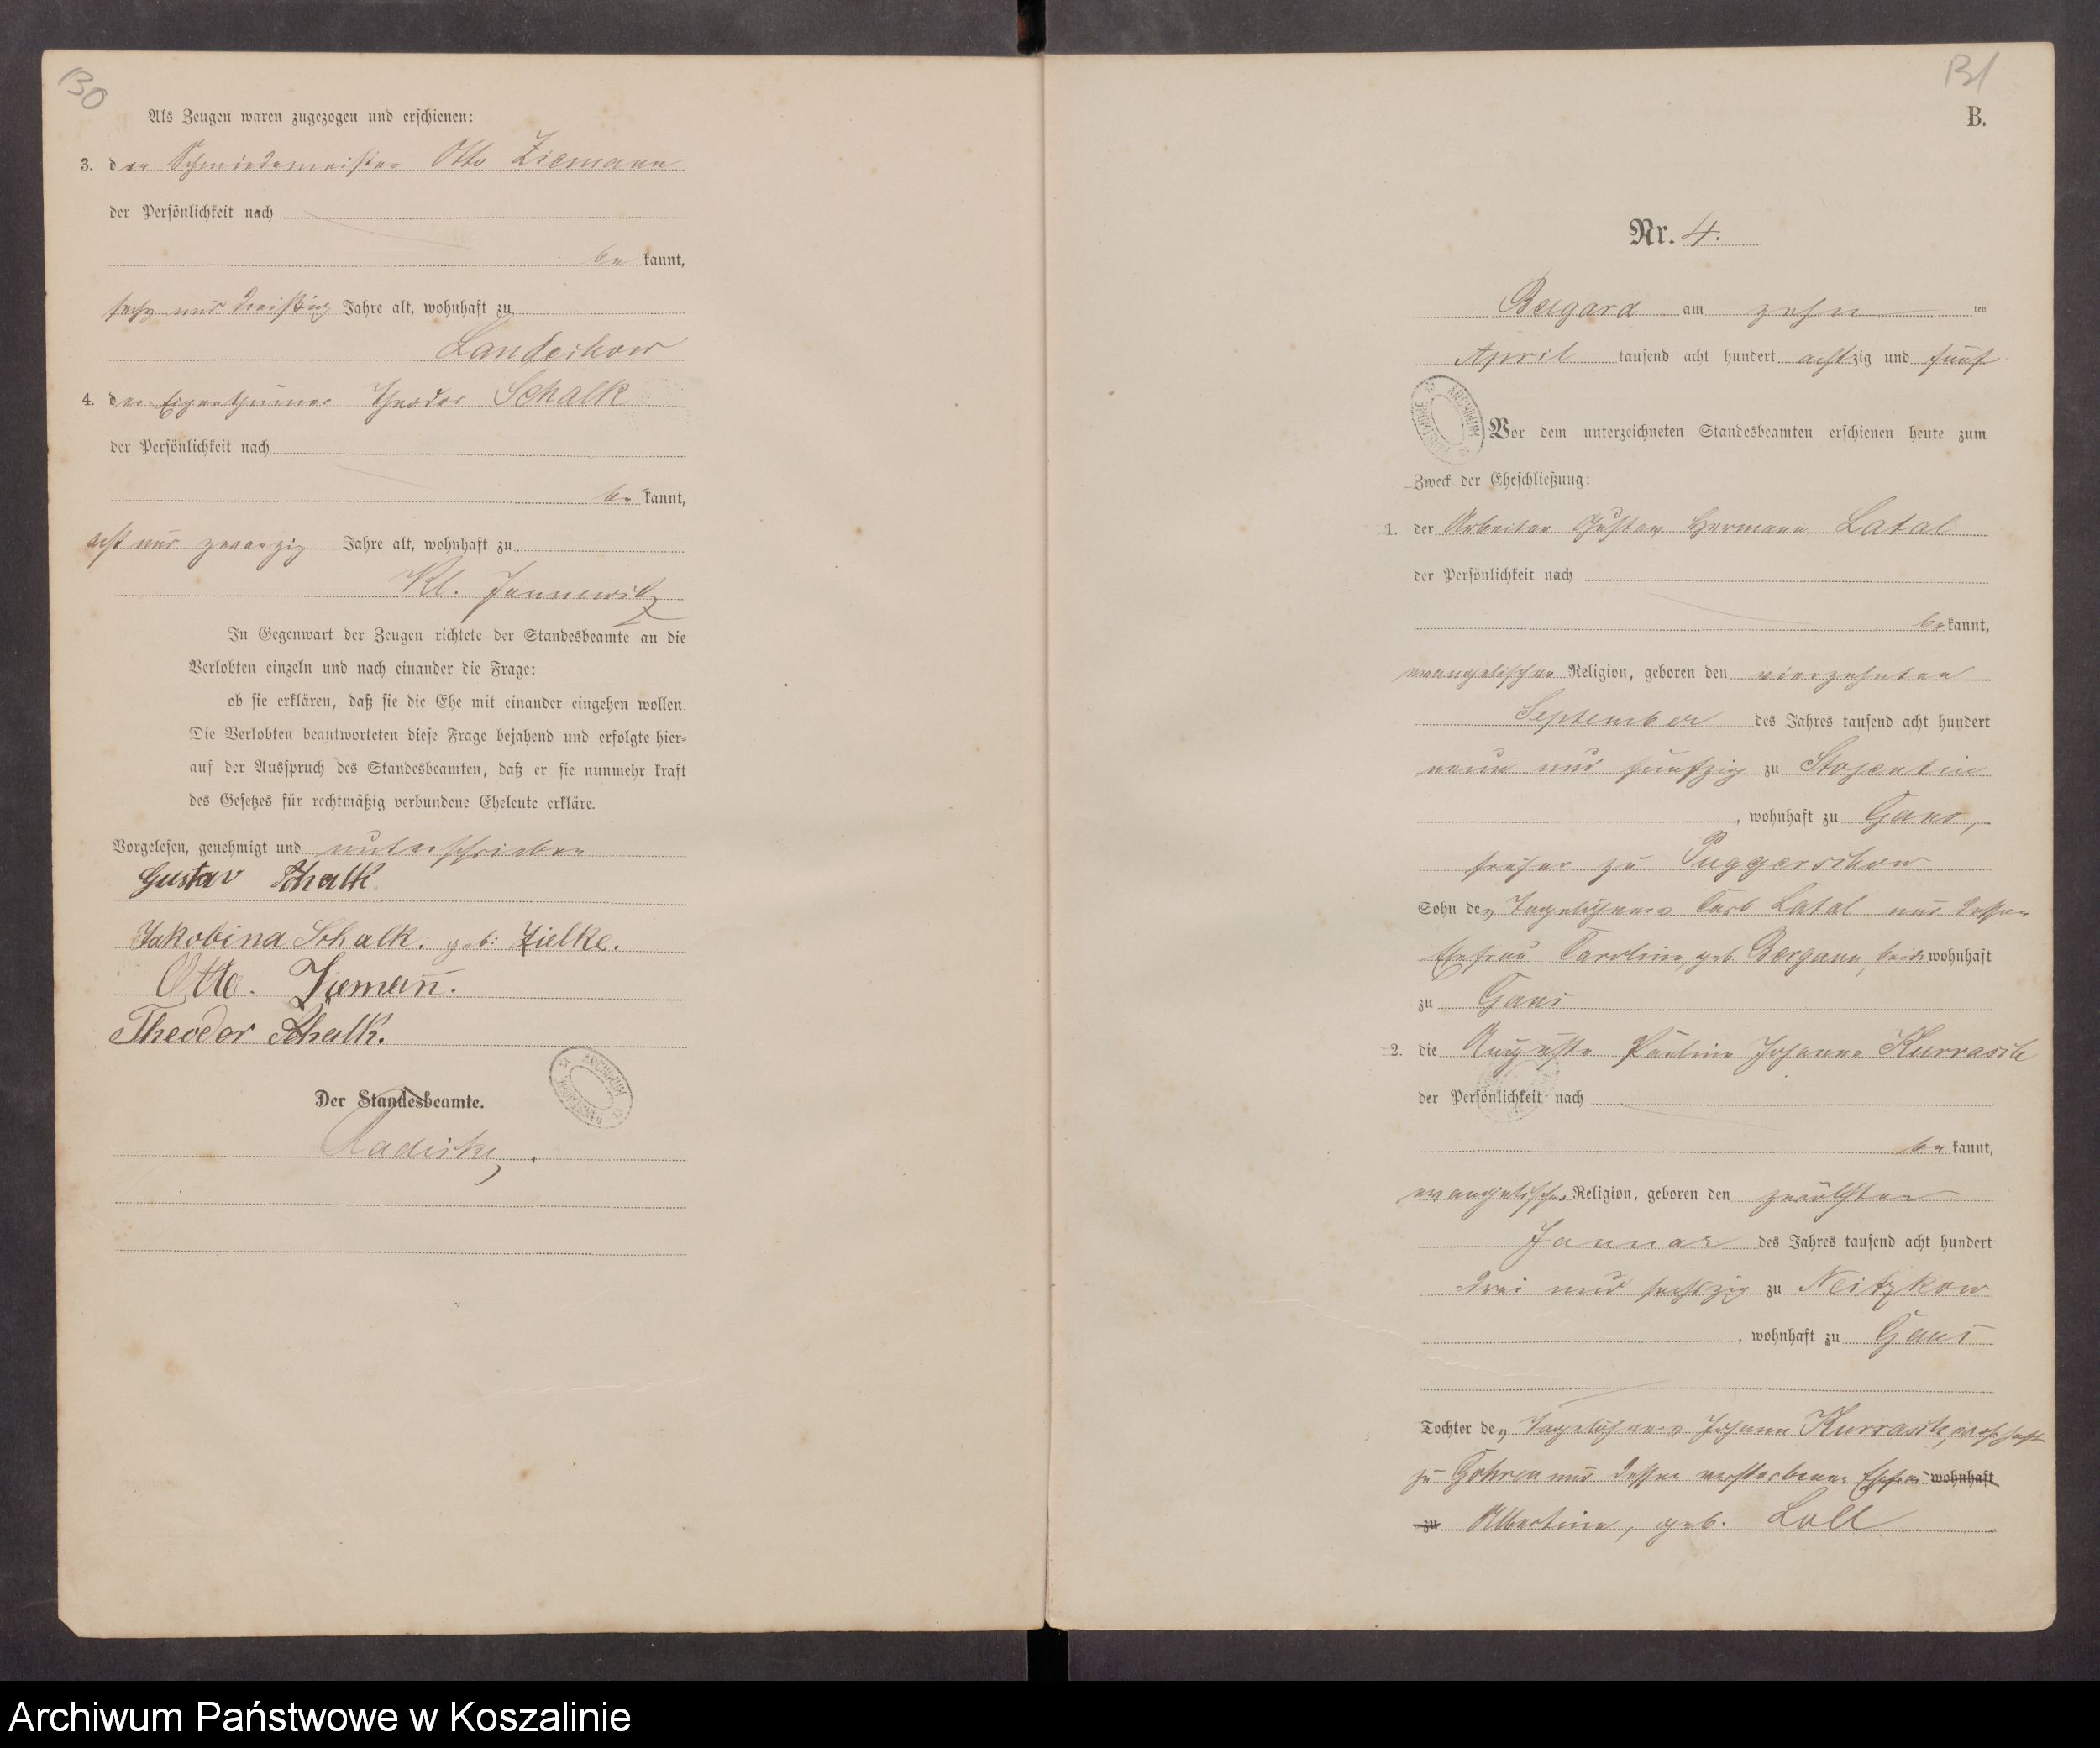 130
Als Zeugen waren zugezogen und erschienen:
3. der Schmiedemeister Otto Ziemann
der Persönlichkeit nach
be kannt,
sechs und dreißig Jahre alt, wohnhaft zu
Landechow
4. der Eigenthümer Theodor Schalk
der Persönlichkeit nach
be kannt,
acht und zwanzig Jahre alt, wohnhaft zu
Kl. Jannewitz
In Gegenwart der Zeugen richtete der Standesbeamte an die
Verlobten einzeln und nach einander die Frage:
ob sie erklären, daß sie die Ehe mit einander eingehen wollen.
Die Verlobten beantworteten diese Frage bejahend und erfolgte hier-
auf der Ausspruch des Standesbeamten, daß er sie nunmehr kraft
des Gesetzes für rechtmäßig verbundene Eheleute erkläre.
Vorgelesen, genehmigt und unterschrieben
Gustav Schalk
Jakobina Schalk. geb: Zielke.
Otto. Ziemann.
Theodor Schalk.
Der Standesbeamte.
Radiske.
131
B.
Nr. 4.
Belgard am zehn ten
April tausend acht hundert achtzig und fünf
Vor dem unterzeichneten Standesbeamten erschienen heute zum
Zweck der Eheschließung:
1. der Arbeiter Gustav Hermann Latal
der Persönlichkeit nach
be kannt,
evangelischer Religion, geboren den vierzehnten
September des Jahres tausend acht hundert
neun und fünfzig zu Stojentin
, wohnhaft zu Gans,
früher zu Puggerschow
Sohn des Tagelöhners Carl Latal und dessen
Ehefrau Caroline, geb. Bergann, beide wohnhaft
zu Gans
2. die Auguste Pauline Johanne Kurrasch
der Persönlichkeit nach
be kannt,
evangelischer Religion, geboren den zwölften
Januar des Jahres tausend acht hundert
drei und sechszig zu Neitzkow
, wohnhaft zu Gans
Tochter des Tagelöhners Johann Kurrasch, wohnhaft
zu Gohren und dessen verstorbener Ehefrau wohnhaft
zu Albertine, geb. Loll
Archiwum Państwowe w Koszalinie